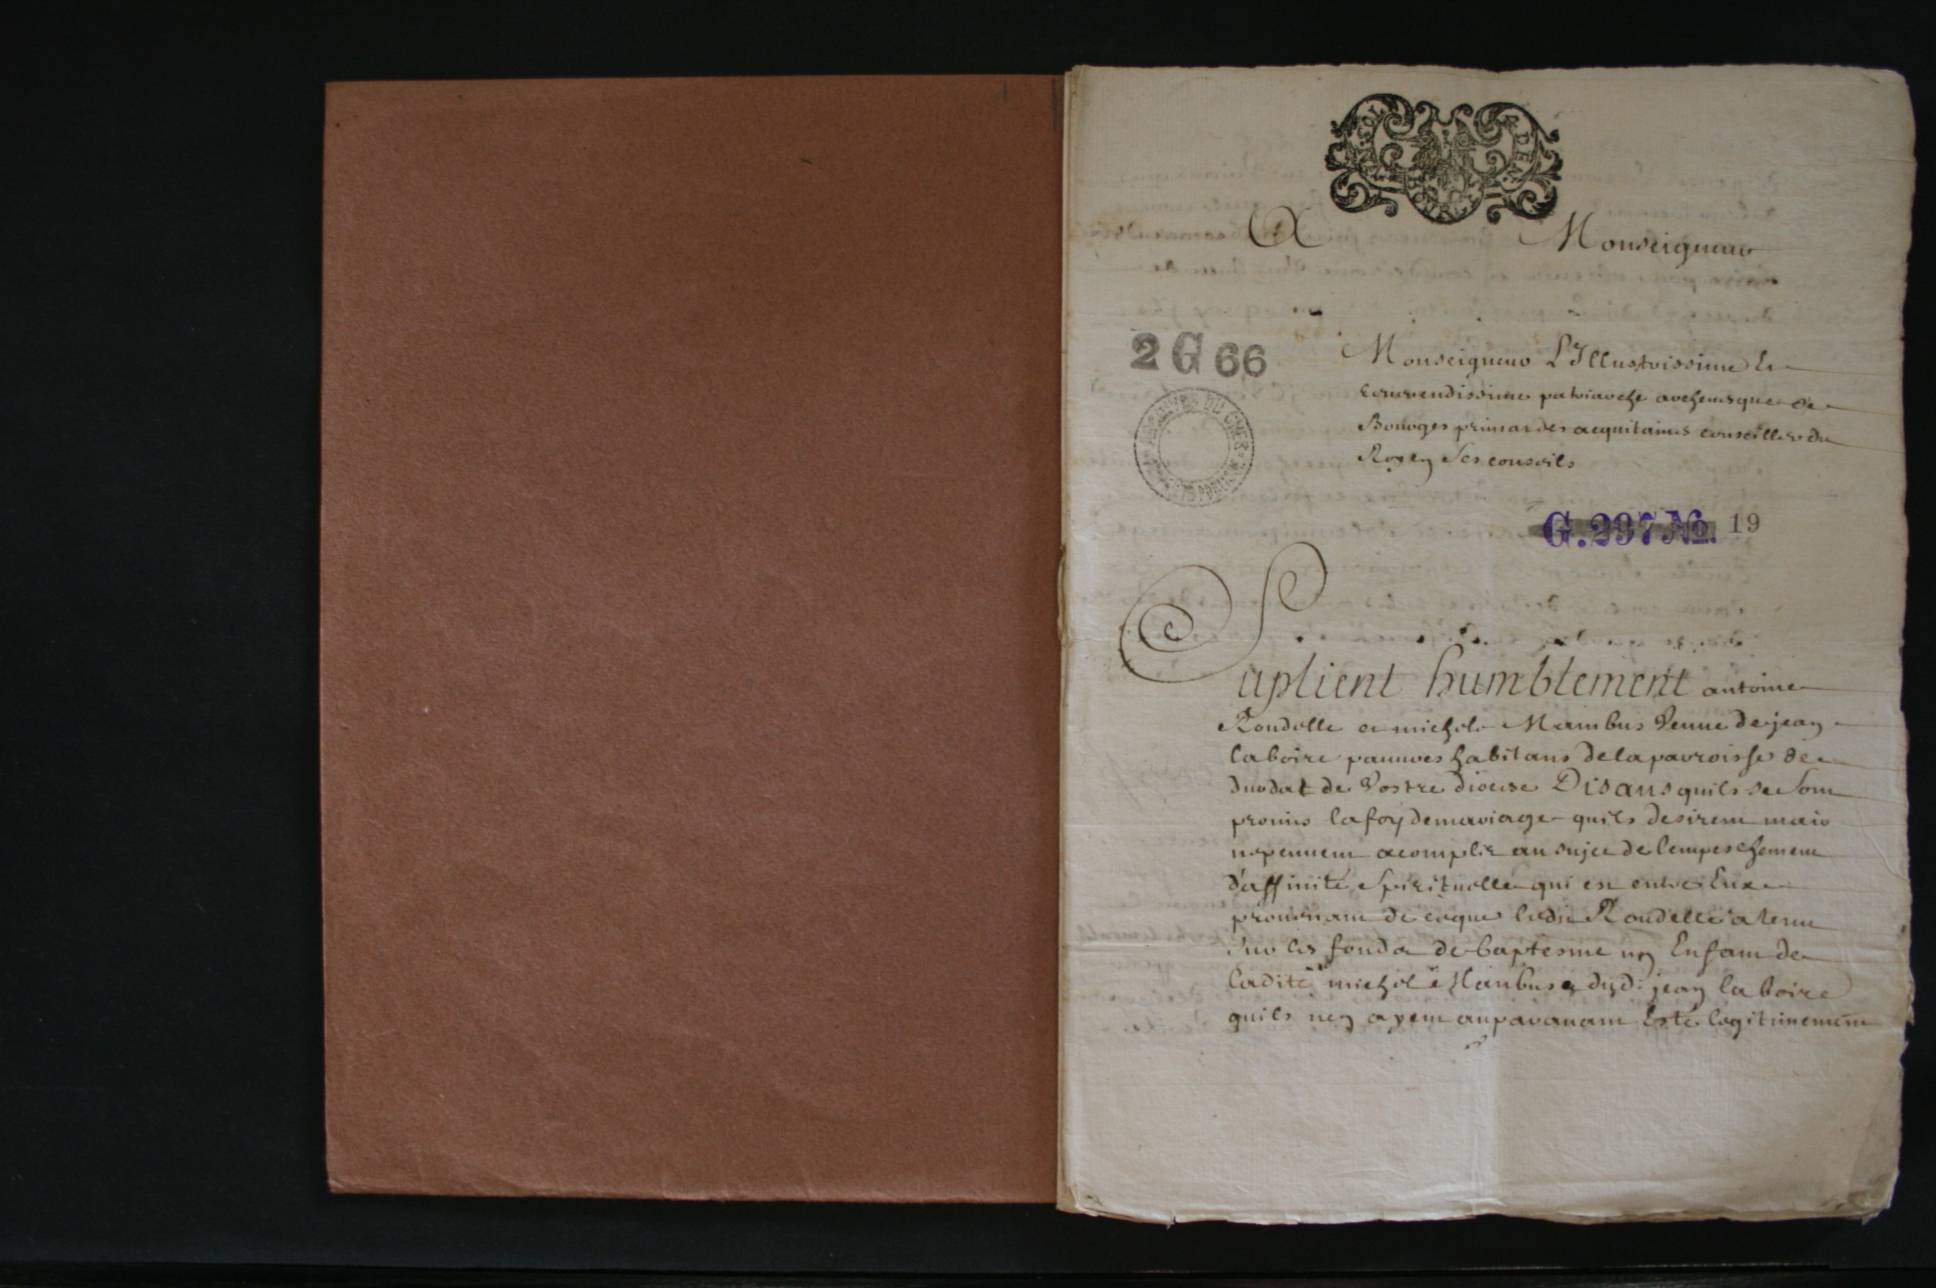 A Monseigneur
2 G 66
Monseigneur L'Illustrissime Et
reverendissime patriarche archevesque de
Bourges primat des acquitaines conseiller du
Roy en Ses conseils
ARCHIVES DU CHER
G. 297 No. 19
Suplient humblement antoine
Rondelle et michele Mambus Veuve de jean
laboire pauvres habitans de la parroisse de
de Vostre diocese Disans quils se Sont
promis la foy de mariage quils desirent
acomplir au sujet de lempeschement
d'affinité Spirituelle qui est entre Eux
provenant de ce que ledit Rondelle a tenu
Sur les fonds de baptesme un Enfant de
ladite michele Mambus & dud: jean laboire
quils nen ayent auparavant Esté legitimement